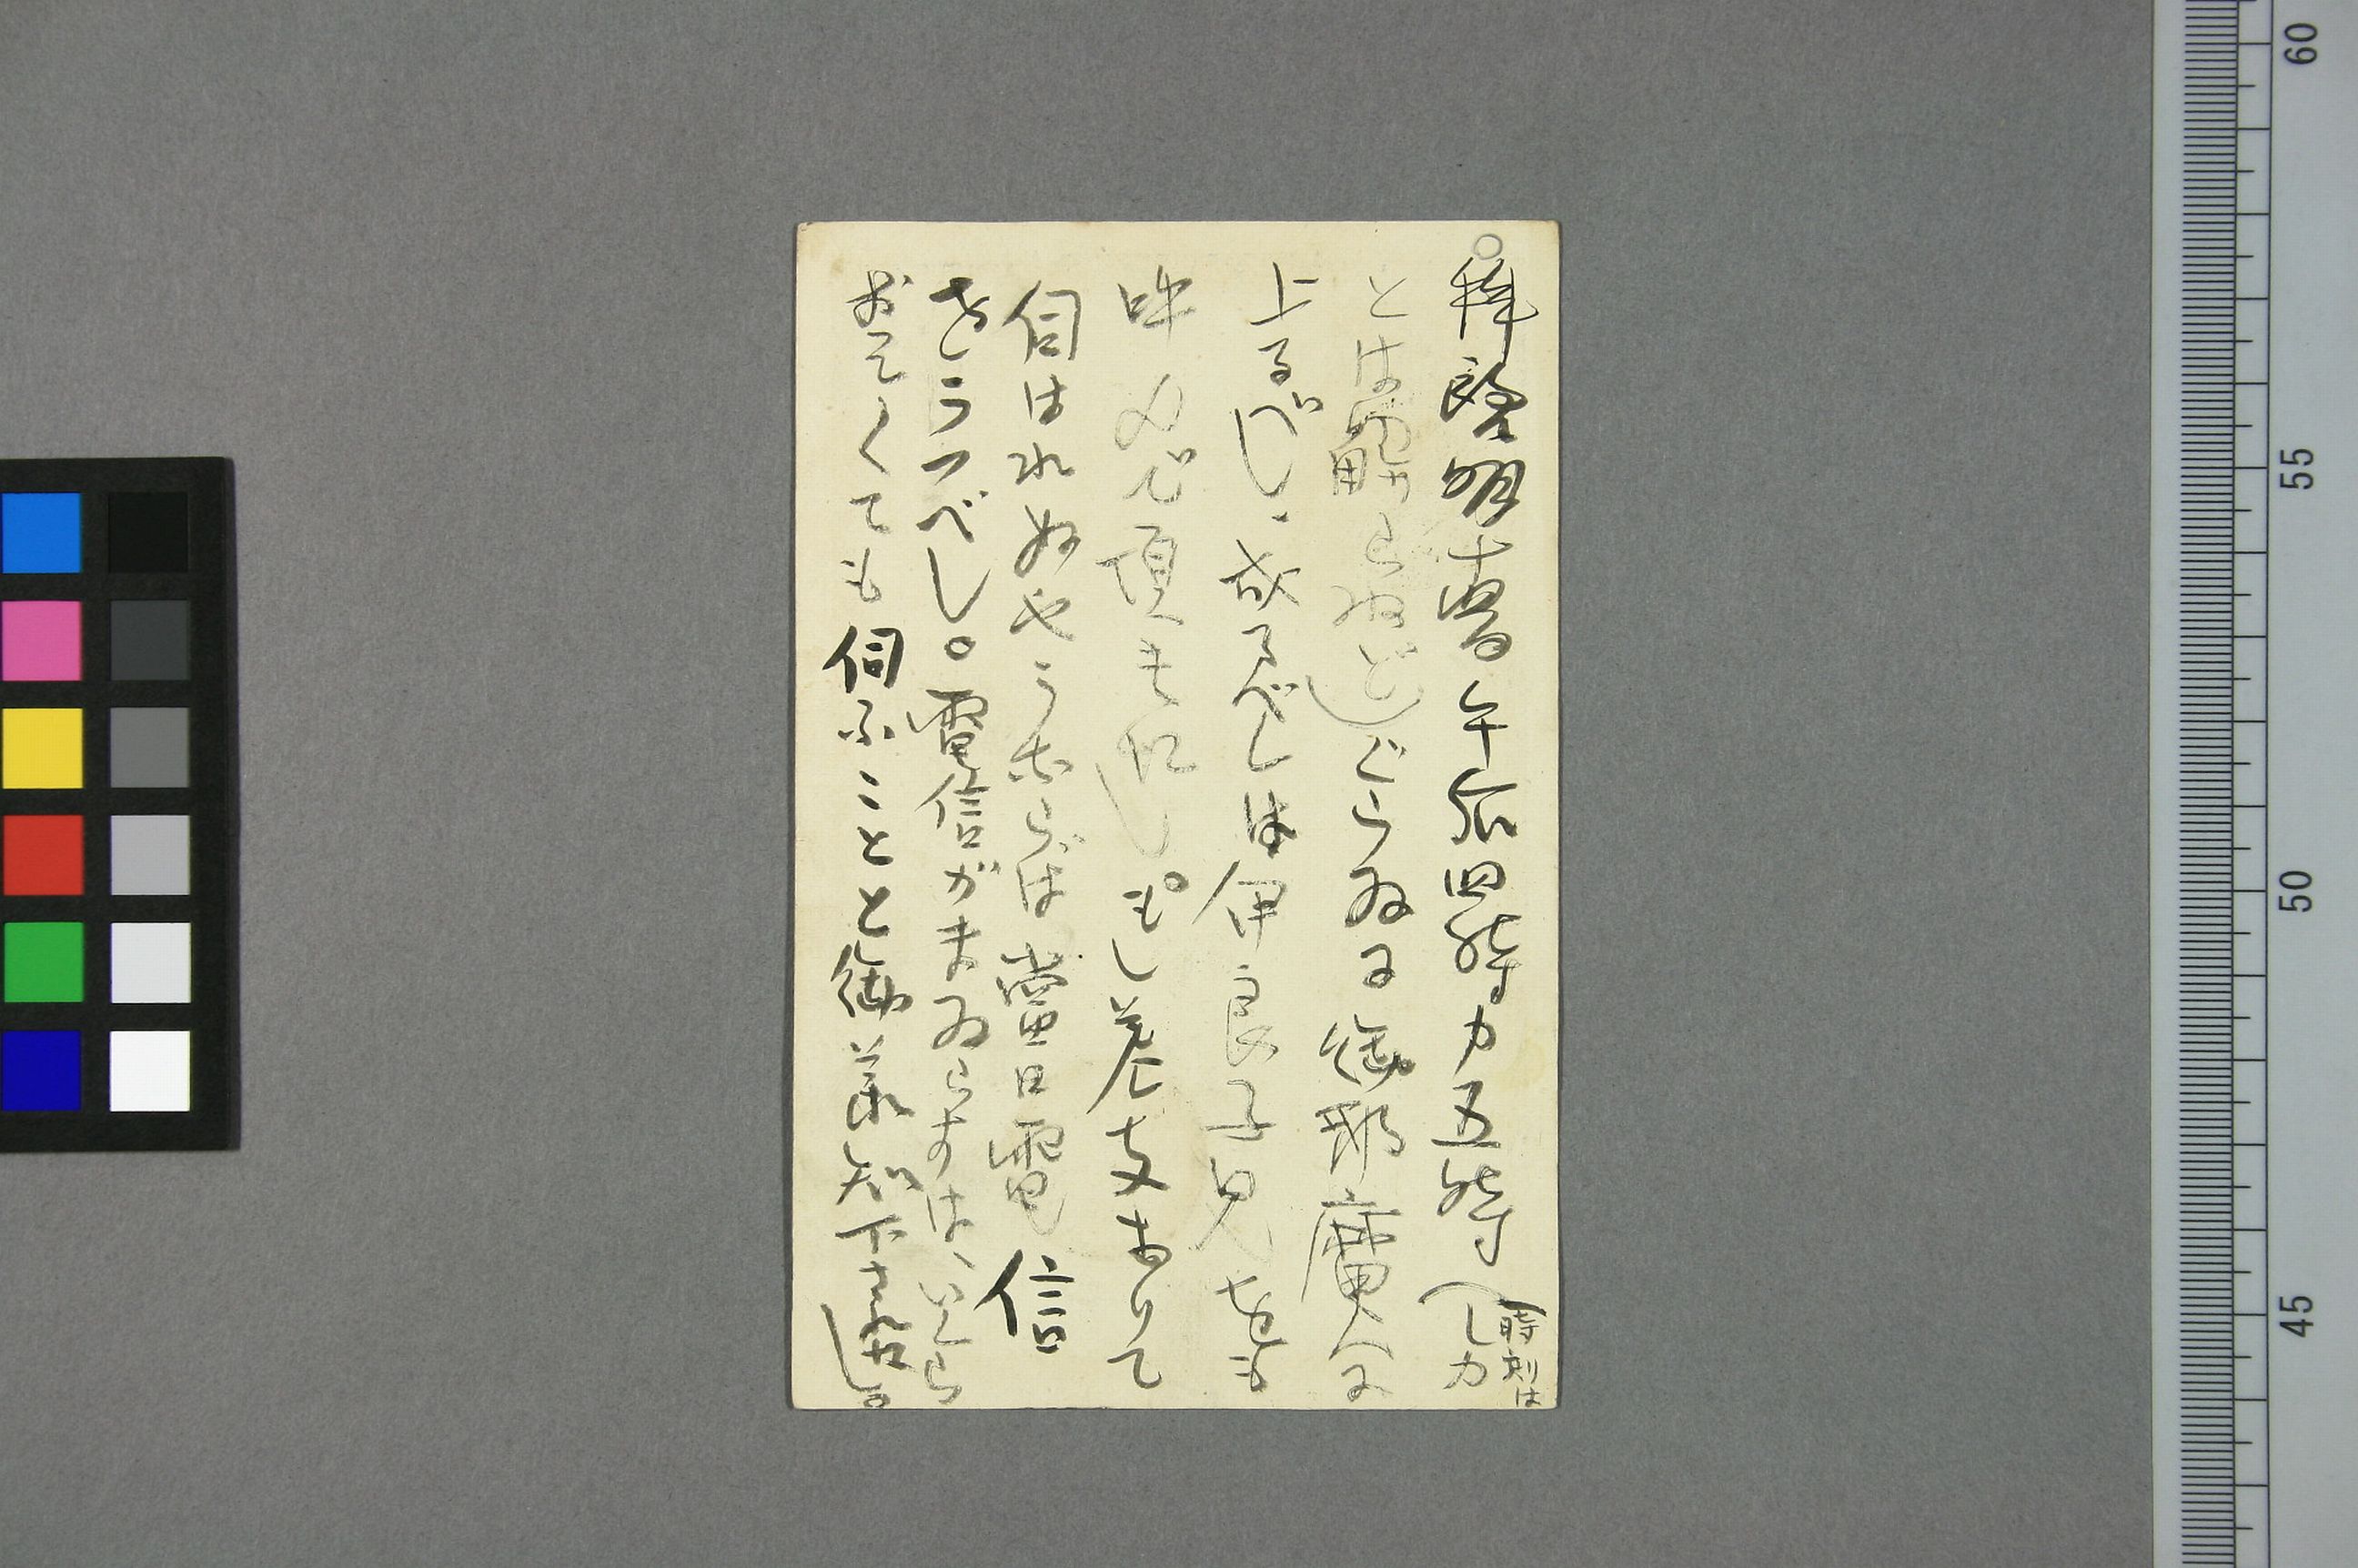 拝啓明十一日午后四時カ五時(時刻はしカ
とは解らねど)ぐらゐに御邪魔に
上るべし、成るべくは伊良子兄も
呼んで頂きたし。もし差支ありて
伺はれぬやうならば当日電信
をうつべし。電信がまゐらずは、いくら
おそくても伺ふことと御承知下され度し。
60
55
50
45